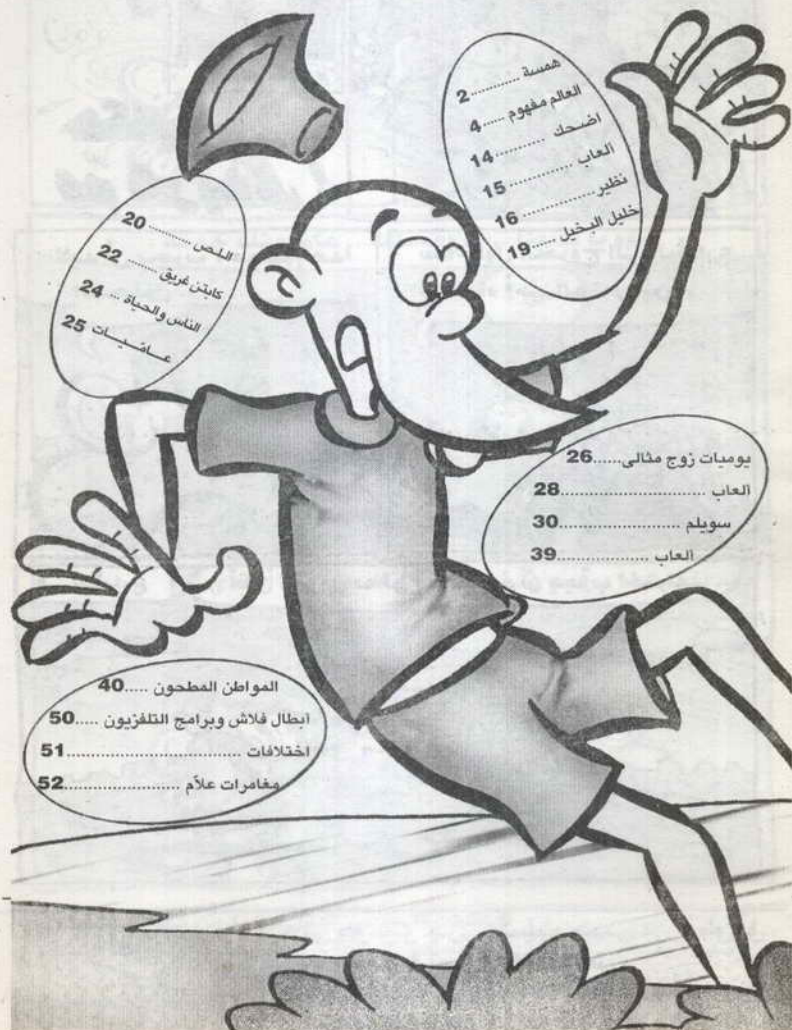 همسة ........... 2
العالم مفهوم ..... 4
اضحك .......... 14
ألعاب ............ 15
نظير ............. 16
خليل البخيل ..... 19
اللص .......... 20
كابتن غريق ....... 22
الناس والحياة ... 24
عـلاقـيـات 25
يوميات زوج مثالى......26
ألعاب ......................28
سويلم .....................30
ألعاب .....................39
المواطن المطحون .....40
أبطال فلاش وبرامج التلفزيون .....50
اختلافات .......................51
مغامرات علاّم ....................52